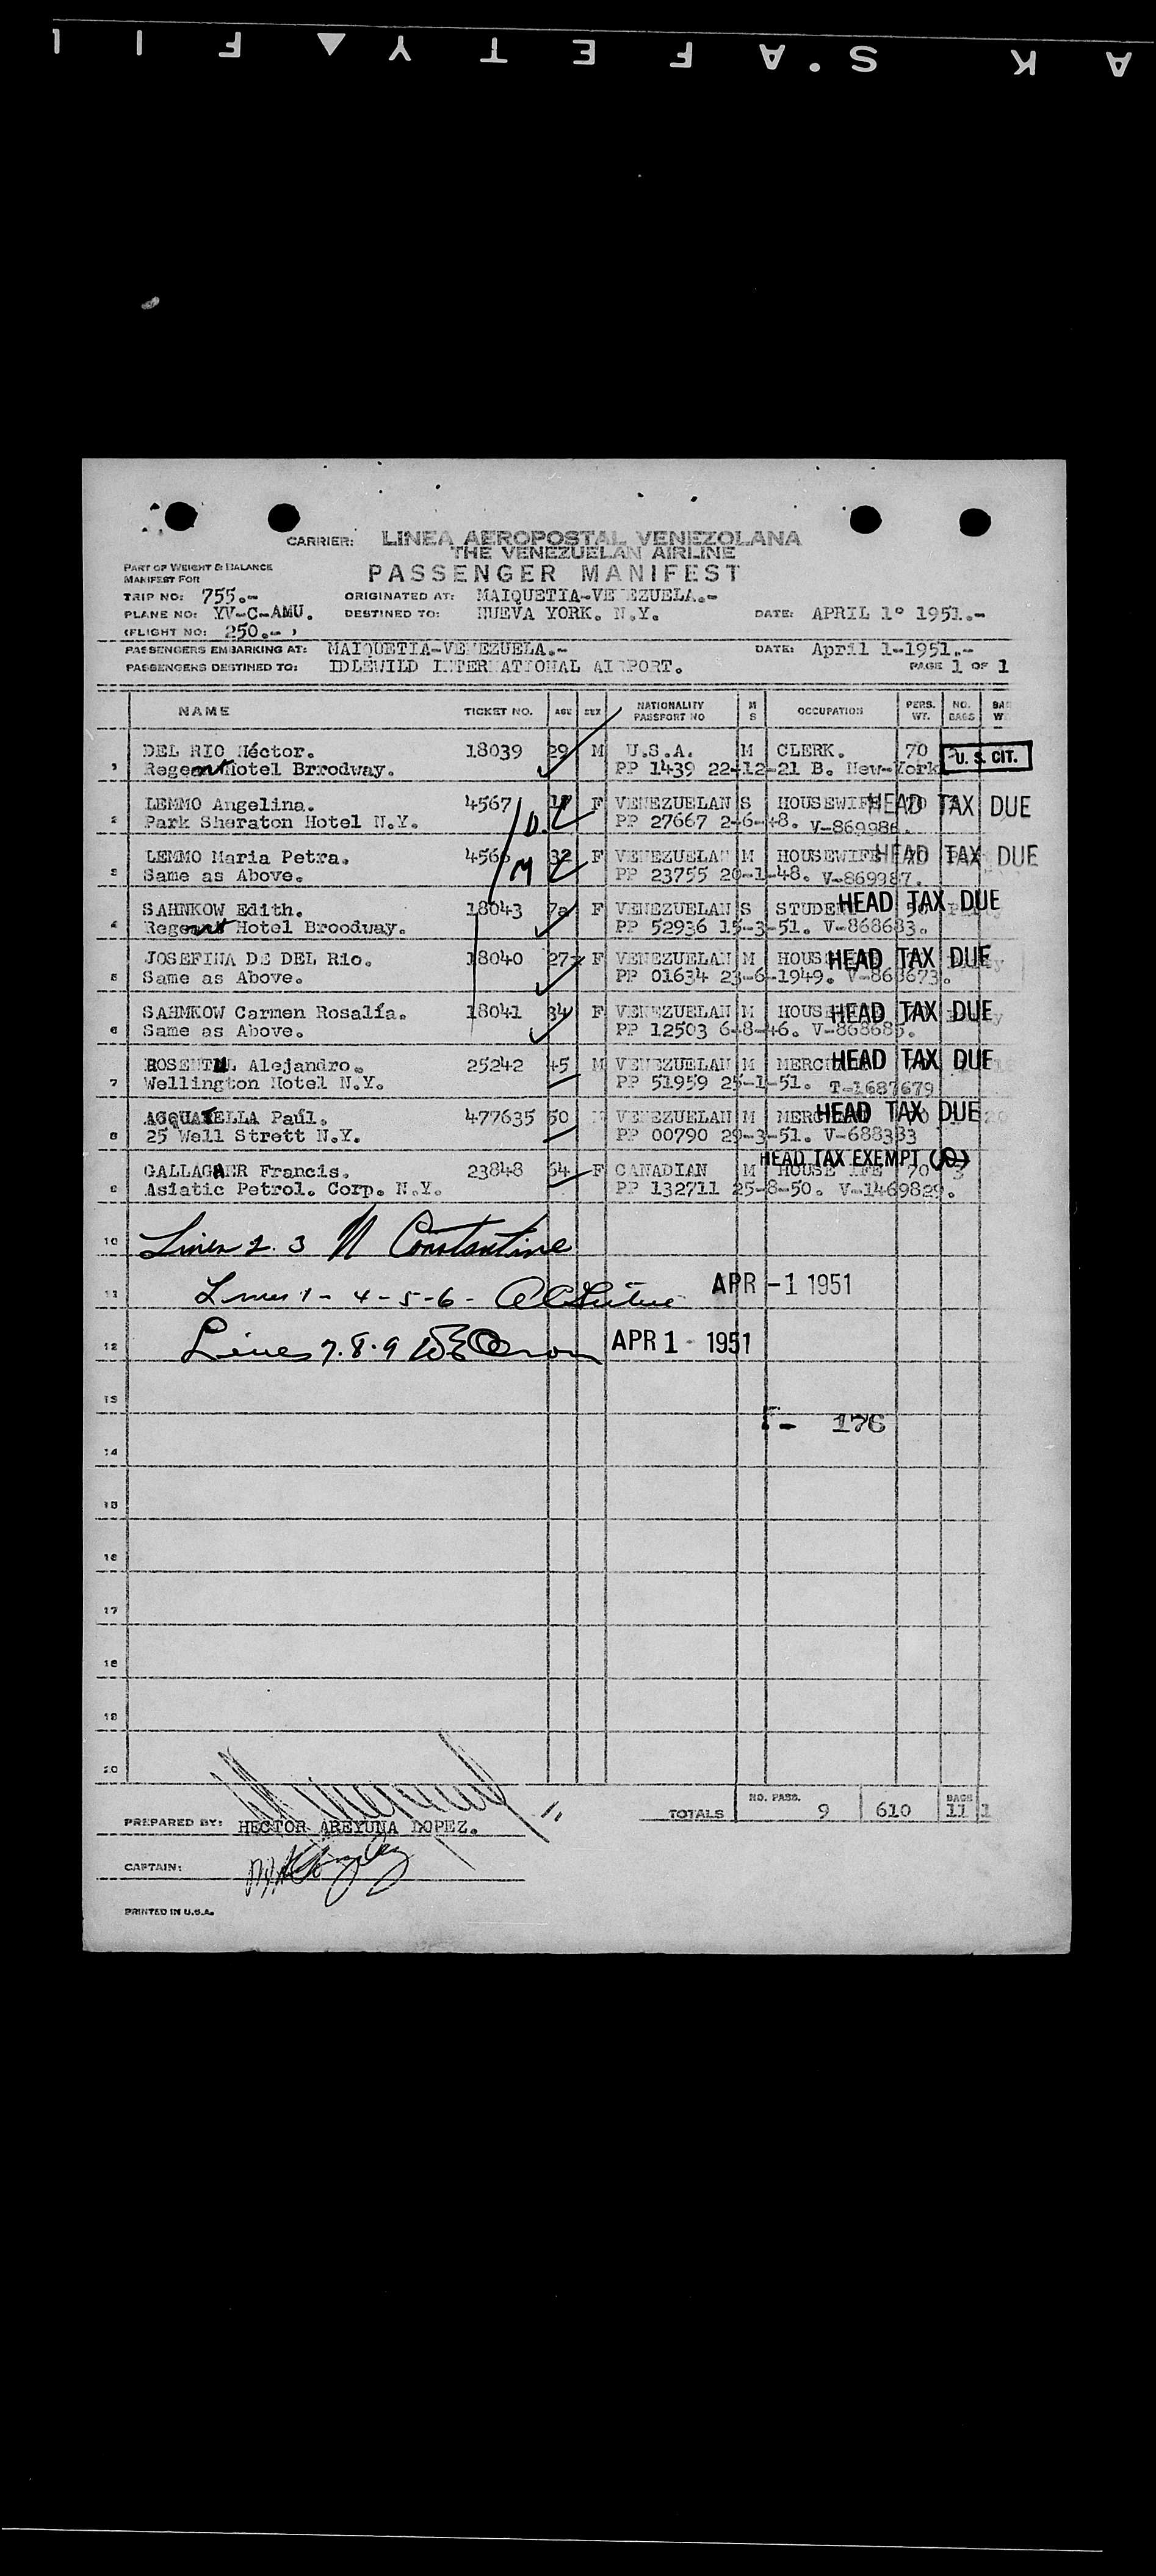 CARRIER: LINEA AEROPOSTAL VENEZOLANA
THE VENEZUELAN AIRLINE
PART OF WEIGHT & BALANCE
MANIFEST FOR
PASSENGER MANIFEST
TRIP NO: 755.- ORIGINATED AT: MAIQUETIA-VENEZUELA.-
PLANE NO: YV-C-AMU. DESTINED TO: NUEVA YORK. N.Y. DATE: APRIL 1º 1951.-
(FLIGHT NO: 250.-
PASSENGERS EMBARKING AT: MAIQUETIA-VENEZUELA.- DATE: April 1-1951.-
PASSENGERS DESTINED TO: IDLEWILD INTERNATIONAL AIRPORT. PAGE 1 OF 1
NAME TICKET NO. AGE SEX NATIONALITY PASSPORT NO M S OCCUPATION PERS. WT. NO. BAGS
1 DEL RIO Héctor. 18039 29 M U.S.A. M CLERK. 70 U. S. CIT.
Regent Hotel Brrodway. PP 1439 22-12-21 B. New-York
2 LEMMO Angelina. 4567 F VENEZUELAN S HOUSEWIFE HEAD TAX DUE
Park Sheraton Hotel N.Y. D. PP 27667 2-6-48. V-869986.
3 LEMMO Maria Petra. 4566 32 F VENEZUELAN M HOUSEWIFE HEAD TAX DUE
Same as Above. M PP 23755 20-1-48. V-869987.
4 SAHNKOW Edith. 18043 F VENEZUELAN S STUDENT HEAD TAX DUE
Regent Hotel Broodway. PP 52936 15-3-51. V-868683.
5 JOSEFINA DE DEL Rio. 18040 27 F VENEZUELAN M HEAD TAX DUE
Same as Above. PP 01634 23-6-1949. V-868673.
6 SAHMKOW Carmen Rosalía. 18041 34 F VENEZUELAN M HEAD TAX DUE
Same as Above. PP 12503 6-8-46. V-868685.
7 ROSENTAL Alejandro. 25242 45 M VENEZUELAN M HEAD TAX DUE
Wellington Hotel N.Y. PP 51959 25-1-51. T-1687679
8 ACQUATELLA Paúl. 477635 50 VENEZUELAN M HEAD TAX DUE
25 Well Strett N.Y. PP 00790 29-3-51. V-688383
9 GALLAGHER Francis. 23848 54 F CANADIAN M HOUSEWIFE 70 3 HEAD TAX EXEMPT
Asiatic Petrol. Corp. N.Y. PP 132711 25-8-50. V-1469829.
10 Lines 2. 3 N Constantine
11 Lines 1 - 4 - 5 - 6 - APR -1 1951
12 Lines 7. 8. 9 APR 1 - 1951
13
176
14
15
16
17
18
19
20
TOTALS NO. PASS. 9 610 BAGS 11
PREPARED BY: HECTOR AREYUNA LOPEZ.
CAPTAIN:
PRINTED IN U.S.A.